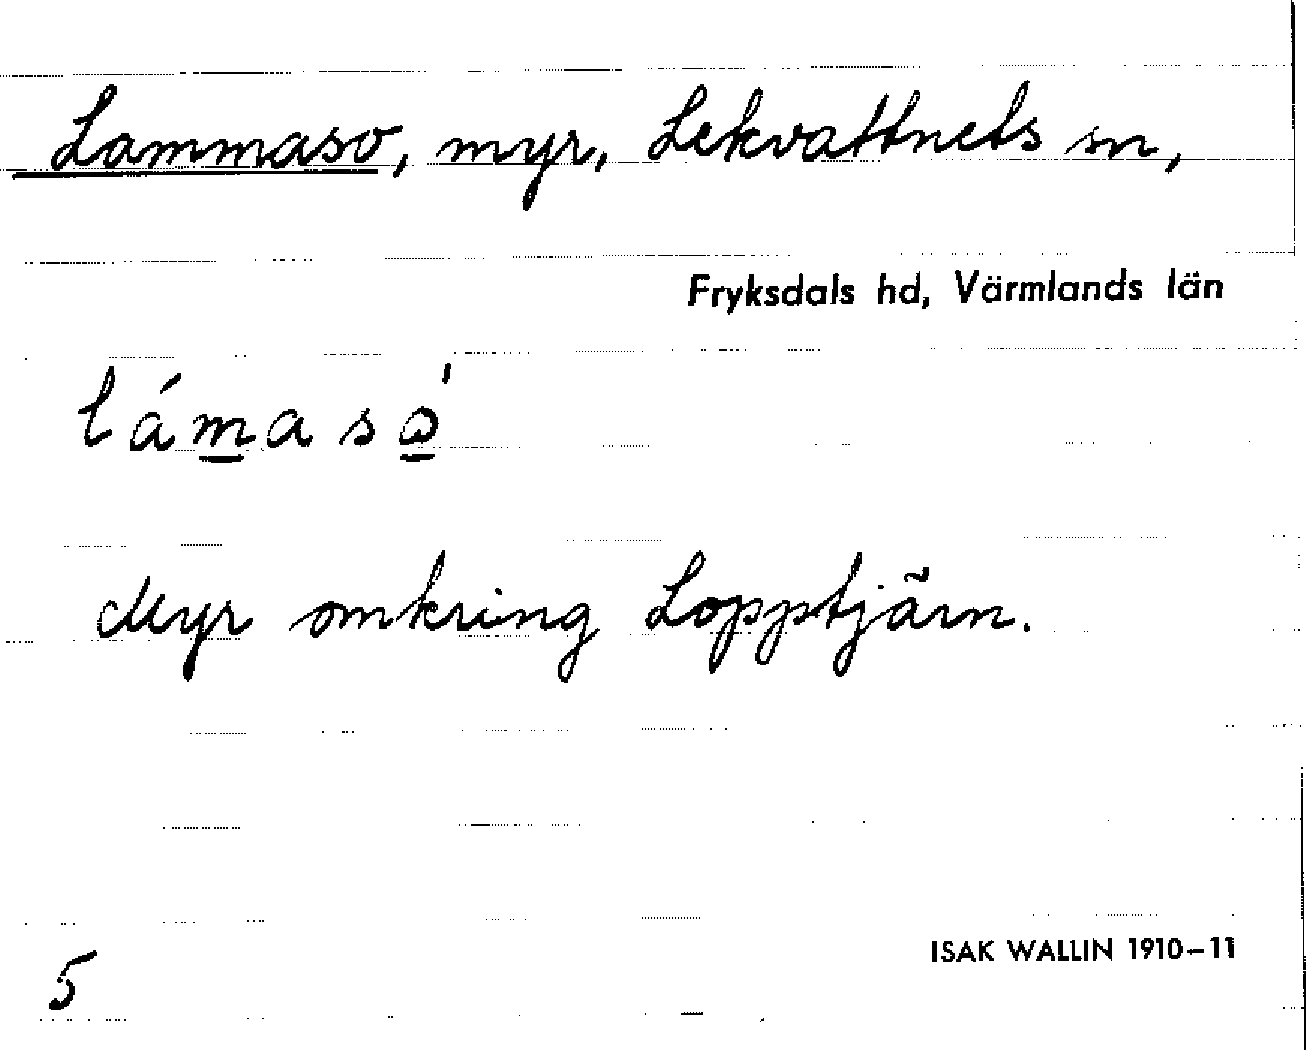 Lammaso, myr, Lekvattnets sn,
Fryksdals hd, Värmlands län
lámasα̍
Myr omkring Lopptjärn.
ISAK WALLIN 1910–11
5